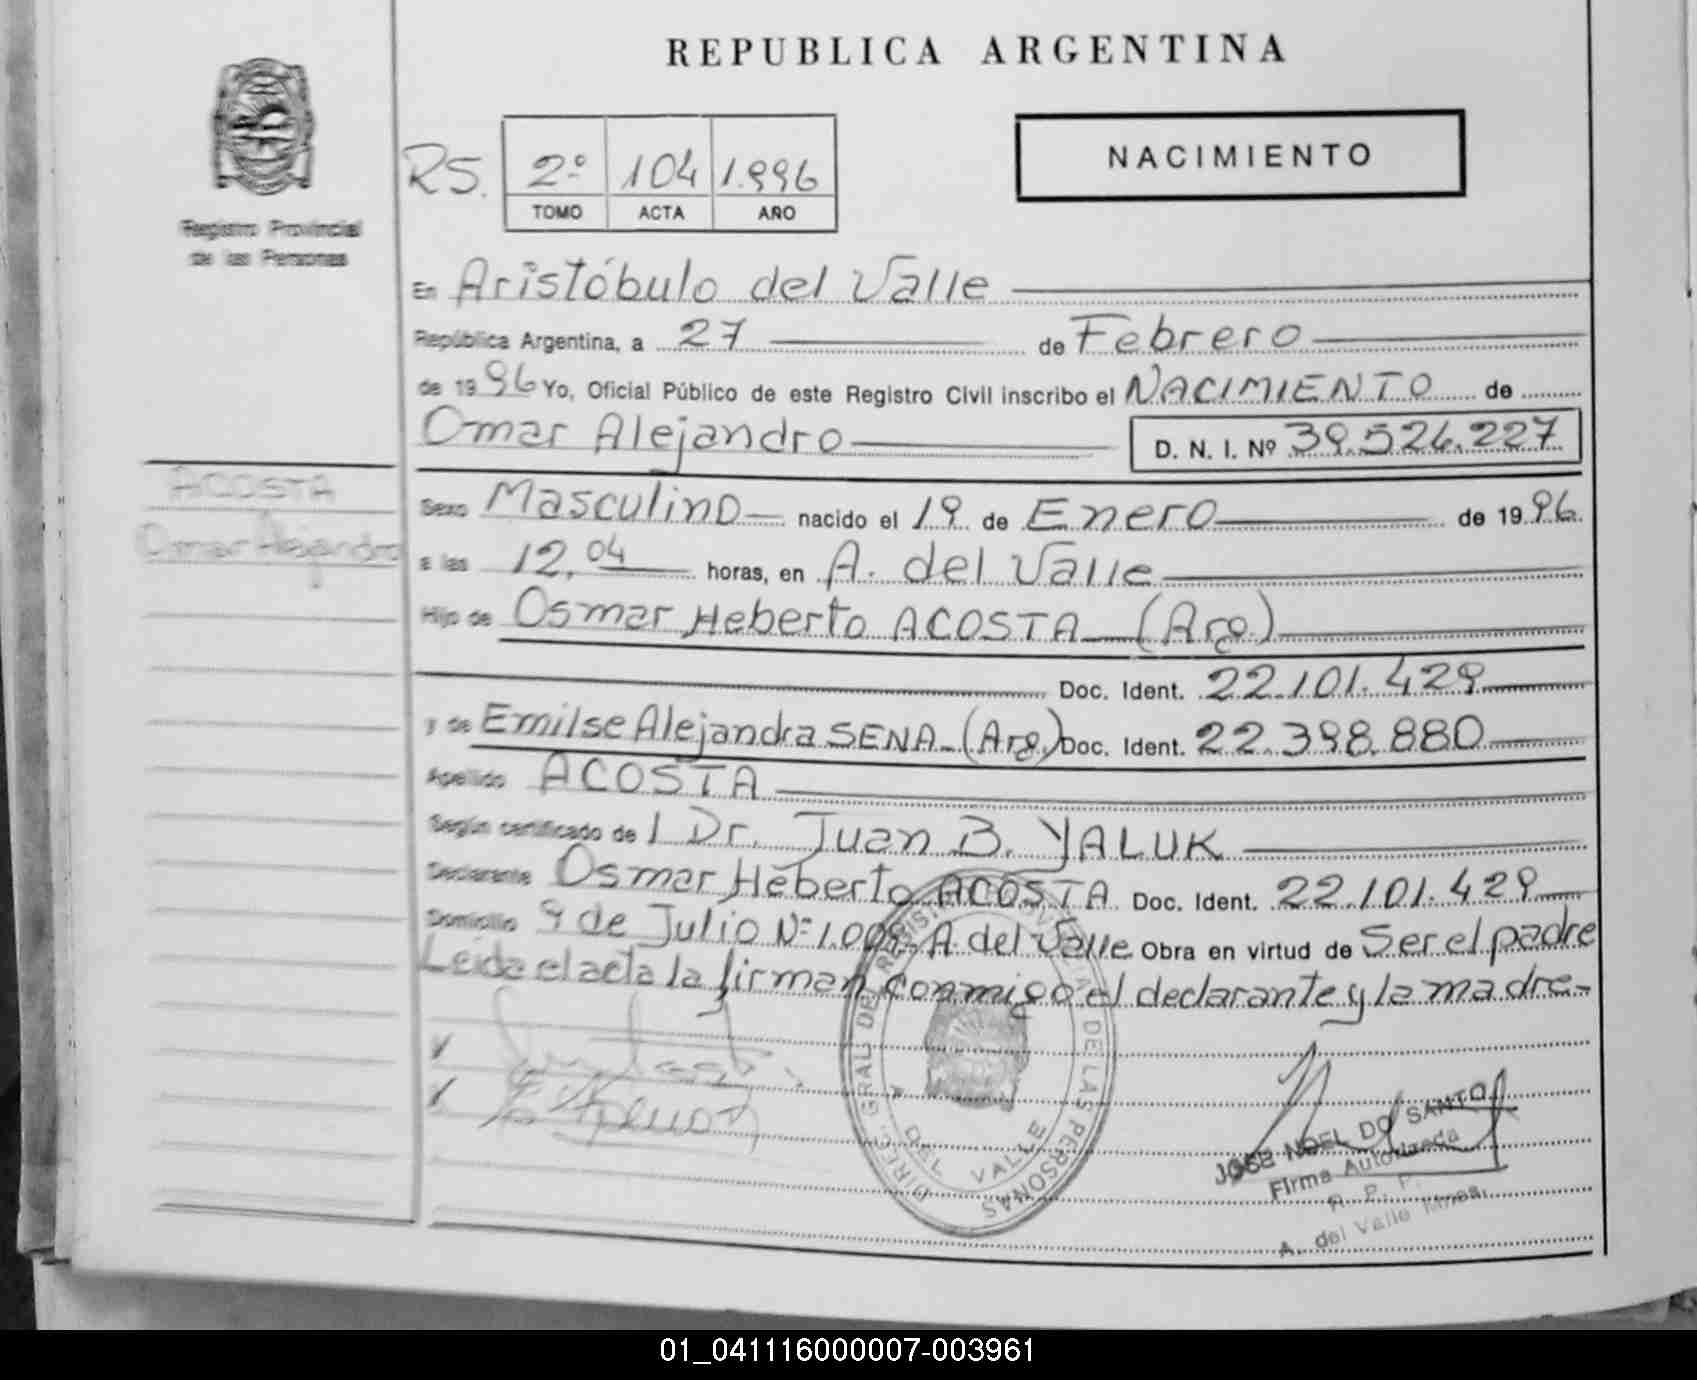 REPUBLICA ARGENTINA
Registro Provincial
de las Personas
RS. 2º 104 1.996
TOMO ACTA AÑO
NACIMIENTO
En Aristóbulo del Valle
República Argentina, a 27 de Febrero
de 1996 Yo, Oficial Público de este Registro Civil inscribo el NACIMIENTO de
Omar Alejandro D. N. I. Nº 39.526.227
ACOSTA
Omar Alejandro
Sexo Masculino nacido el 19 de Enero de 1996.
a las 12,04 horas, en A. del Valle
Hijo de Osmar Heberto ACOSTA (Arg.)
Doc. Ident. 22.101.429
y de Emilse Alejandra SENA (Arg.) Doc. Ident. 22.398.880
Apellido ACOSTA
Según certificado de l Dr. Juan B. YALUK
Declarante Osmar Heberto ACOSTA Doc. Ident. 22.101.429
Domicilio 9 de Julio Nº 1.009- A. del Valle Obra en virtud de Ser el padre
Leída el acta la firman conmigo el declarante y la madre-
DIREC. GRAL DEL REGISTRO PROVINCIAL DE LAS PERSONAS
A DEL VALLE
JOSE NOEL DO SANTO
Firma Autorizada
R. P. P.
A. del Valle Mnes.
01_041116000007-003961